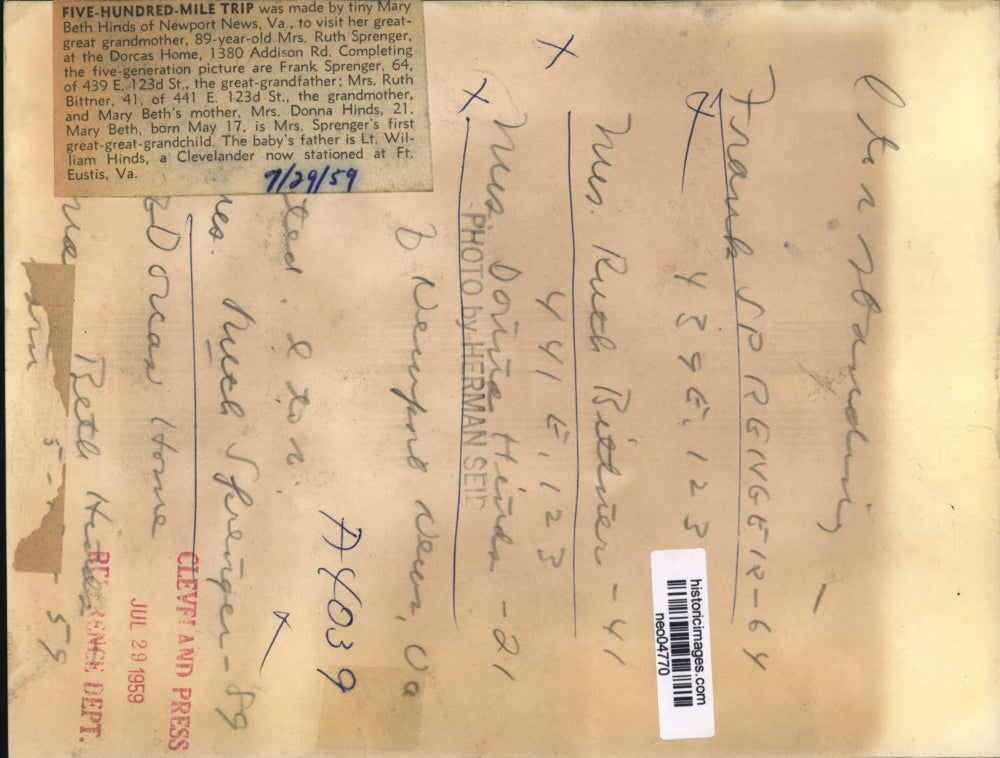 FIVE-HUNDRED-MILE TRIP was made by tiny Mary
Beth Hinds of Newport News, Va., to visit her great-
great grandmother, 89-year-old Mrs. Ruth Sprenger,
at the Dorcas Home, 1380 Addison Rd. Completing
the five-generation picture are Frank Sprenger, 64,
of 439 E. 123d St., the great-grandfather; Mrs. Ruth
Bittner, 41, of 441 E. 123d St., the grandmother,
and Mary Beth's mother, Mrs. Donna Hinds, 21.
Mary Beth, born May 17, is Mrs. Sprenger's first
great-great-grandchild. The baby's father is Lt. Wil-
liam Hinds, a Clevelander now stationed at Ft.
Eustis, Va.
7/29/59
l to r standing —
Frank SPRENGER - 64
439 E. 123
Mrs. Ruth Bittner - 41
441 E. 123
Mrs. Donna Hinds - 21
PHOTO by HERMAN SEID
Newport News, Va
A4039
l to r.
Ruth Sprenger - 89
Dorcas Home
Beth Hinds
59
CLEVELAND PRESS
JUL 29 1959
REFERENCE DEPT.
historicimages.com
neo04770